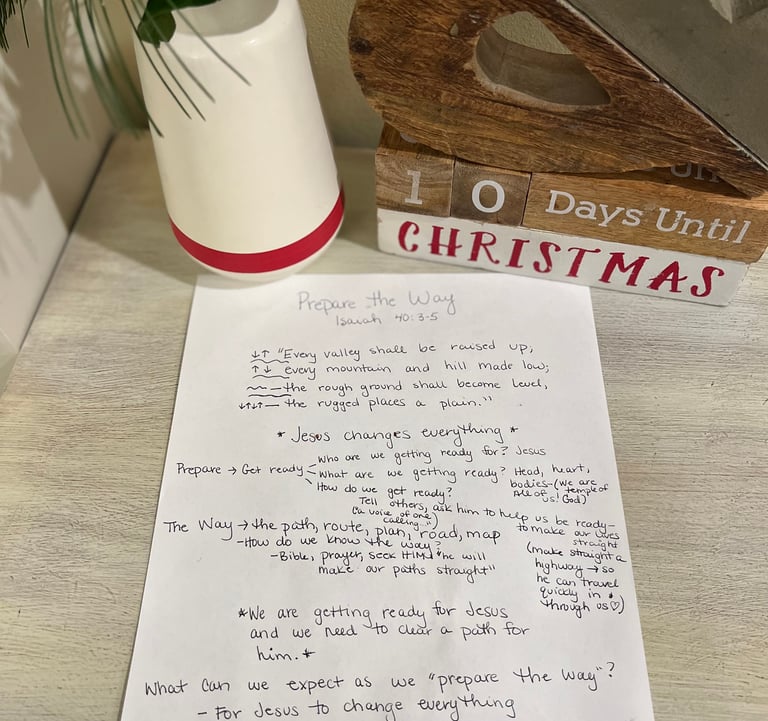 1 0 Days Until
CHRISTMAS
Prepare the Way
Isaiah 40:3-5
↓↑ "Every valley shall be raised up,
↑↓ every mountain and hill made low;
~~— the rough ground shall become level,
↓↑↓↑— the rugged places a plain."
* Jesus changes everything *
Prepare → Get ready
Who are we getting ready for? Jesus
What are we getting ready? Head, heart,
bodies-(we are
All of temple of
us! God)
How do we get ready?
Tell others, ask him to help us be ready-
(a voice of one
calling...")
to make our lives
straight
(make straight a
highway → so
he can travel
quickly in +
through us ♡)
The Way → the path, route, plan, road, map
-How do we know the way?
-Bible, prayer, seek HIM "he will
make our paths straight"
*We are getting ready for Jesus
and we need to clear a path for
him.*
What can we expect as we "prepare the way"?
- For Jesus to change everything